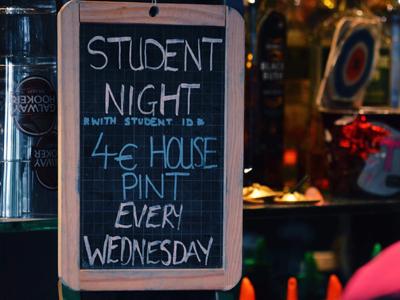 STUDENT
NIGHT
WITH STUDENT ID
4€ HOUSE
PINT
EVERY
WEDNESDAY
GALWAY
HOOKER
HOOKER
BLACK
BUSH